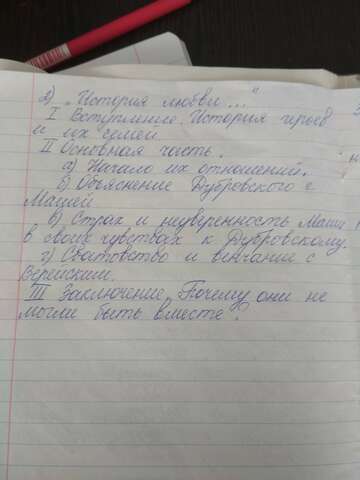 2) „История любви..."
I Вступление. История героев
и их семей
II Основная часть.
а) Начало их отношений.
б) Объяснение Дубровского с
Машей
в) Страх и неуверенность Маши
в своих чувствах к Дубровскому.
г) Сватовство и венчание с
Верейским.
III Заключение. Почему они не
могли быть вместе?